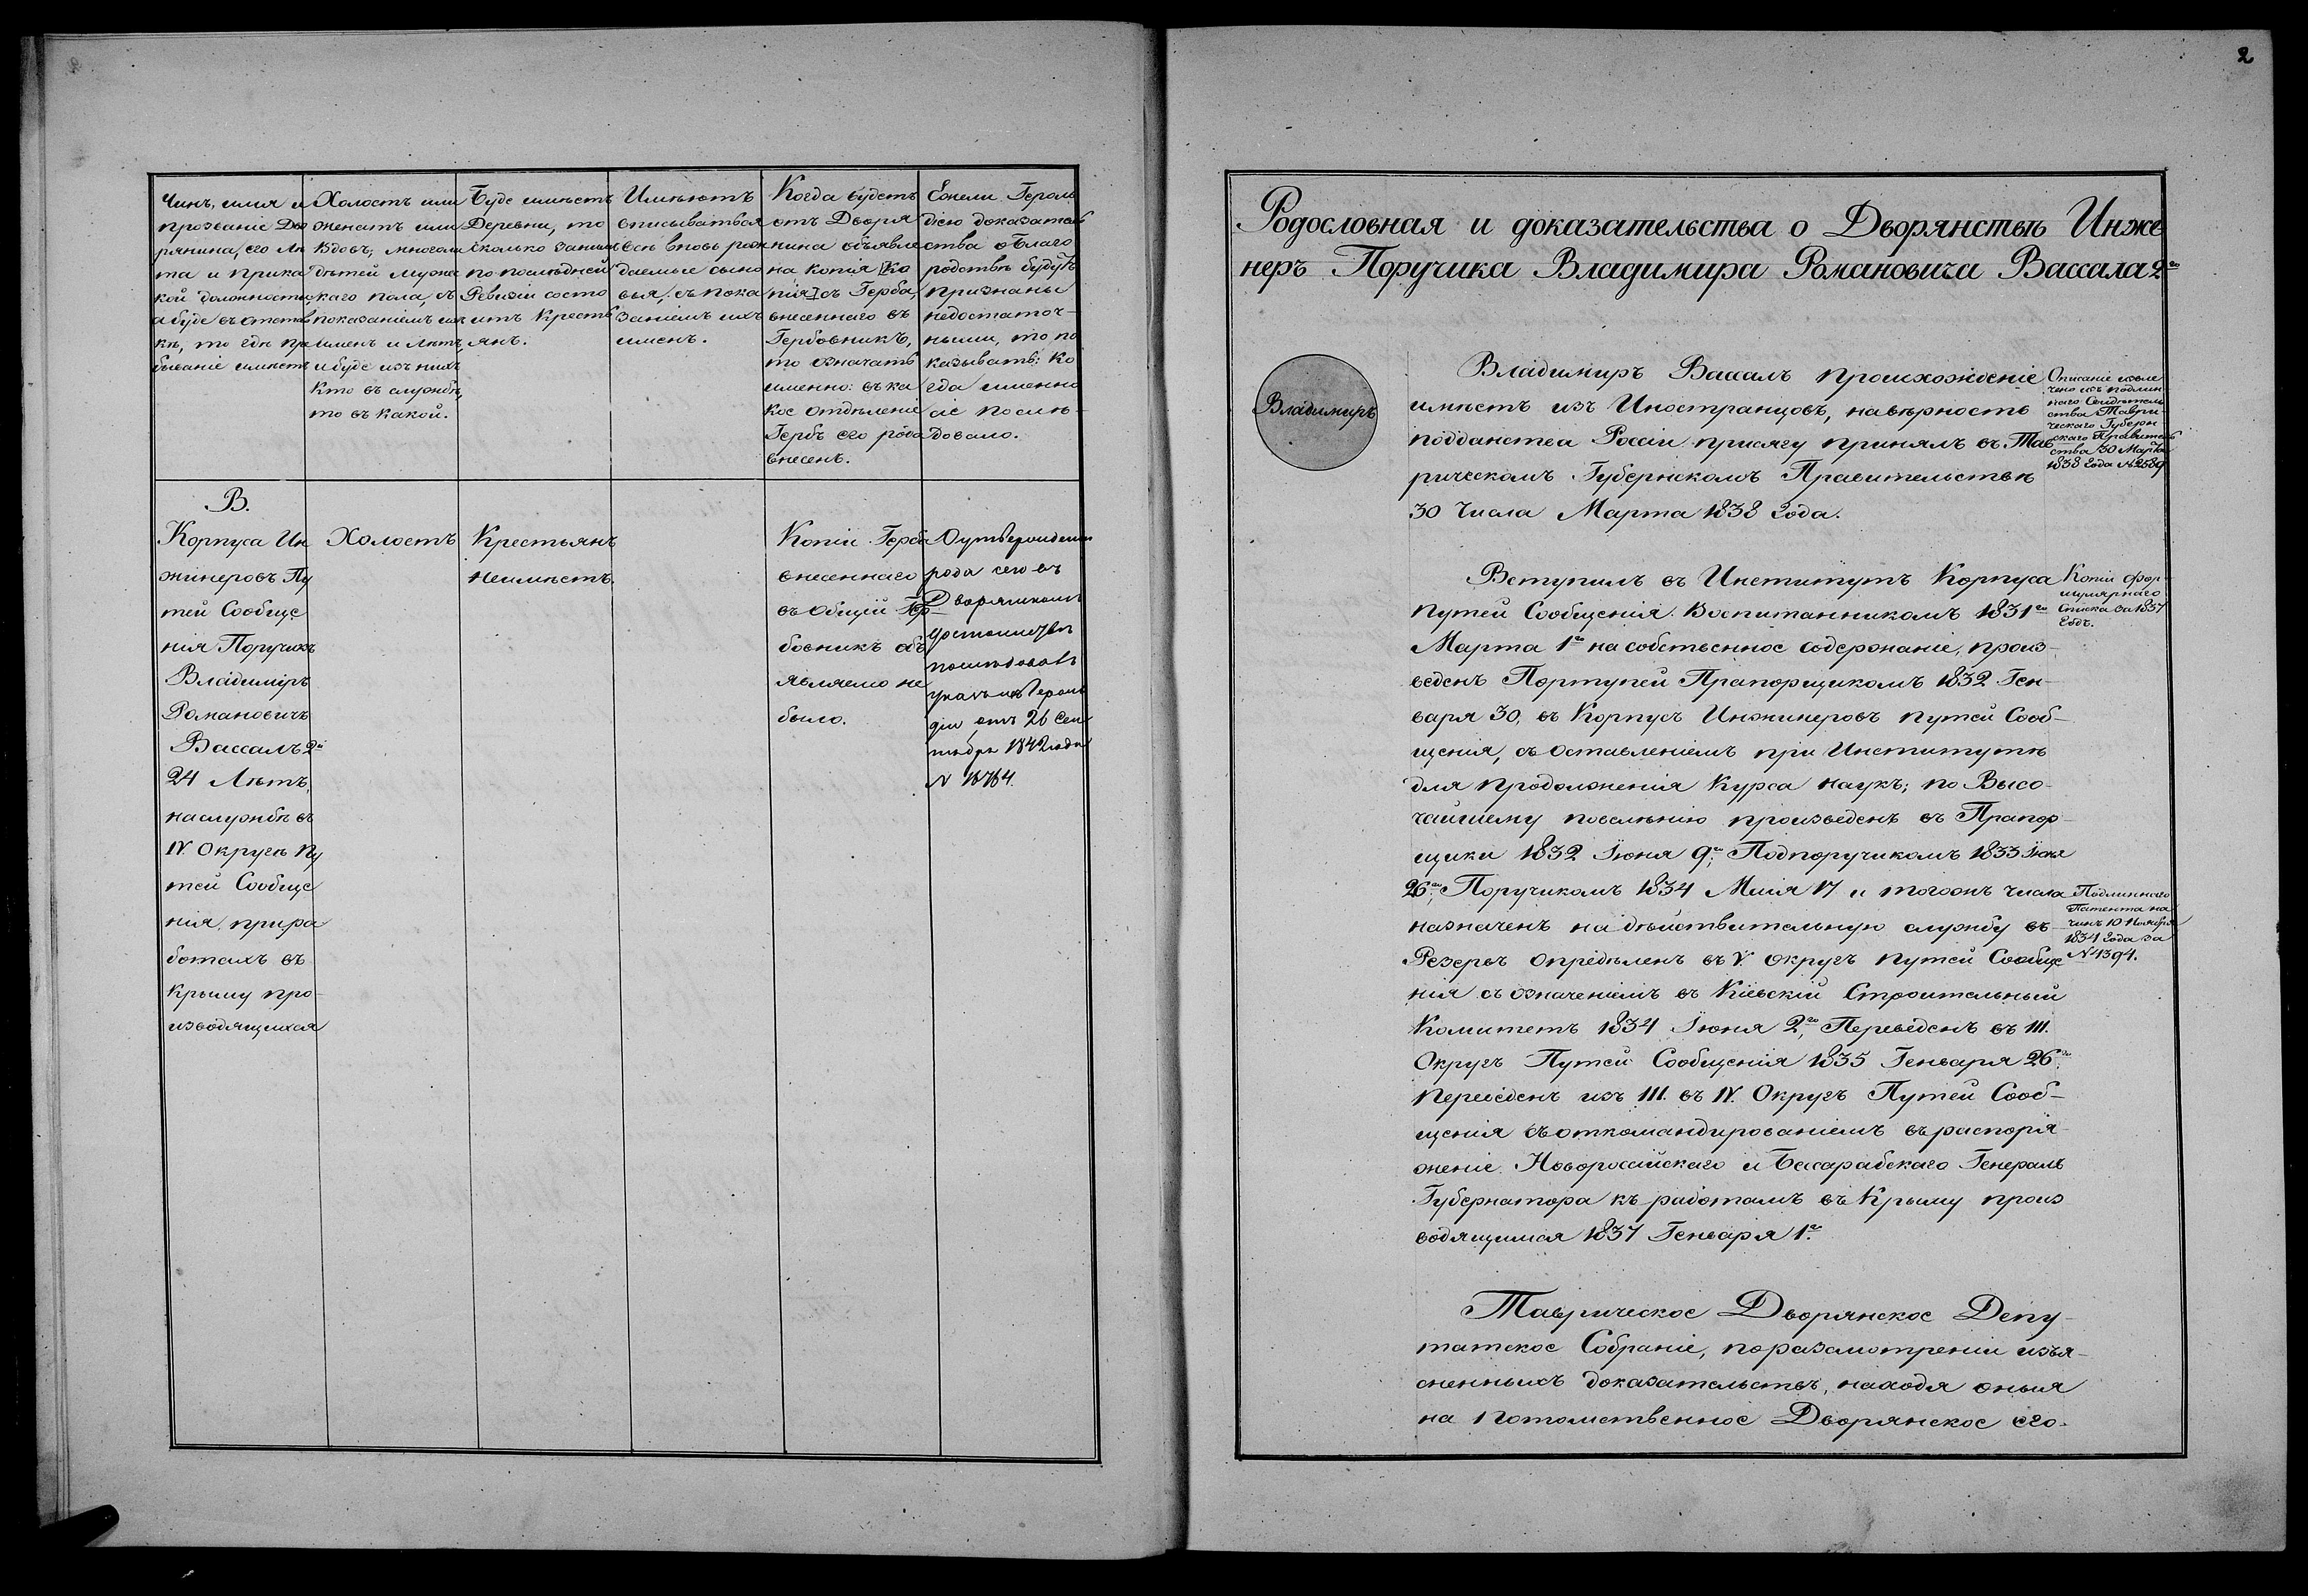 Чинъ, имя и
прозваніе Дво
рянина, его лѣ
та и прика
кой должности,
а буде въ отстав
кѣ, то гдѣ пре
бываніе имѣетъ
Холостъ или
женатъ или
вдовъ, многоли
дѣтей мужес
каго пола, съ
показаніемъ ихъ
именъ и лѣтъ,
и буде изъ нихъ
кто въ службѣ,
то въ какой.
Буде имѣетъ
Деревни, то
сколько за нимъ
по послѣдней
Ревизіи состо
итъ Кресть
янъ.
Имѣютъ
вписываться
всѣ вновь рож
даемые сыно
вья, съ пока
заніемъ ихъ
именъ.
Когда будетъ
отъ Дворя
нина объявле
на копія [ко
пія] съ Герба,
внесеннаго въ
Гербовникъ,
то означать
именно: въ ка
кое отдѣленіе
Гербъ его рода
внесенъ.
Ежели Героль
діею доказатель
ства о благо
родствѣ будутъ
признаны
недостаточ-
ными, то по
казывать: ко
гда именно
сіе послѣ-
довало.
В.
Корпуса Ин
жинеровъ Пу
тей Сообще
нія Поручикъ
Владиміръ
Романовичъ
Вассалъ 2й
24 Лѣтъ,
на службѣ въ
IV. Округѣ Пу
тей Сообще
нія, при ра
ботахъ въ
Крыму про-
изводящихся
Холостъ
Крестьянъ
неимѣетъ.
Копіи Герба
внесеннаго
въ Общій Гер-
бовникъ объ
являемо не
было.
О утвержденіи
рода сего въ
Дворянскомъ
достоинствѣ
послѣдовалъ
указъ изъ Героль
діи отъ 26 Сен
тября 1842 года
N 18784.
2
Родословная и доказательства о Дворянствѣ Инже
неръ Поручика Владимира Романовича Вассала 2го
Владимиръ
Владимиръ Вассалъ происхожденіе
имѣетъ изъ Иностранцовъ, на вѣрность
подданства Россіи присягу принялъ въ Тав
рическомъ Губернскомъ Правительствѣ
30 Числа Марта 1838 года.
Описаніе извле
чено изъ подлин
наго Свидѣтель
ства Таври-
ческаго Губерн
скаго Правитель
ства 30 Марта
1838 года № 2589
Вступилъ въ Институтъ Корпуса
Путей Сообщенія Воспитанникомъ 1831го
Марта 1го на собственное содержаніе, произ-
веденъ Портупей Прапорщикомъ 1832 Ген-
варя 30, въ Корпусъ Инжинеровъ Путей Сооб-
щенія, съ оставленіемъ при Институтѣ
для продолженія Курса наукъ; по Высо-
чайшему повелѣнію произведенъ въ Прапор-
щики 1832 Іюня 9го; Подпоручикомъ 1833 Іюня
26го, Поручикомъ 1834 Маія 17 и тогожъ числа
назначенъ на дѣйствительную службу въ
Резервъ опредѣленъ въ V. округъ Путей Сообще
нія съ означеніемъ въ Кіевскій Строительный
Комитетъ 1834 Іюня 2го, Переведенъ въ III.
Округъ Путей Сообщенія 1835 Генваря 26го
Переведенъ изъ III. въ IV. Округъ Путей Сооб-
щенія съ откомандированіемъ въ распоря-
женіе Новороссійскаго и Бесарабскаго Генералъ
Губернатора къ работамъ въ Крыму произ
водящимся 1837 Генваря 1го.
Копіи фор-
мулярнаго
Списка за 1837
Годъ.
Подлиннаго
Патента на
чинъ 10 Ноября
1834 года за
№ 1394.
Таврическое Дворянское Депу-
татское Собраніе, по разсмотреніи изъя-
сненныхъ доказательствъ, находя оныя
на Потомственное Дворянское его